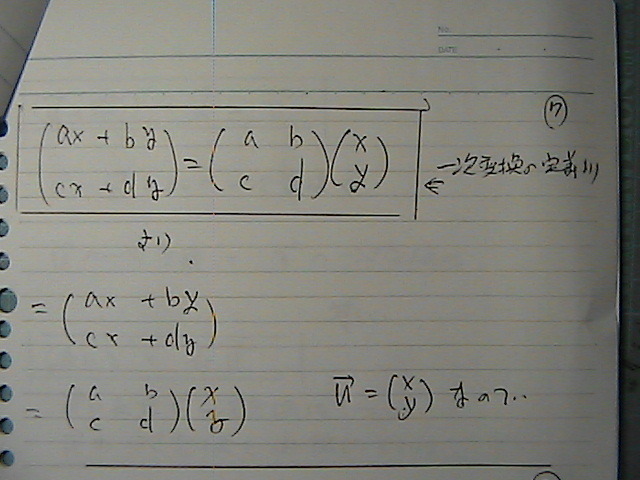 No.
DATE
⑦
(ax + by / cx + dy) = (a b / c d)(x / y) ← 一次変換の定義
より
= (ax + by / cx + dy)
= (a b / c d)(x / y) u→ = (x / y) なので..